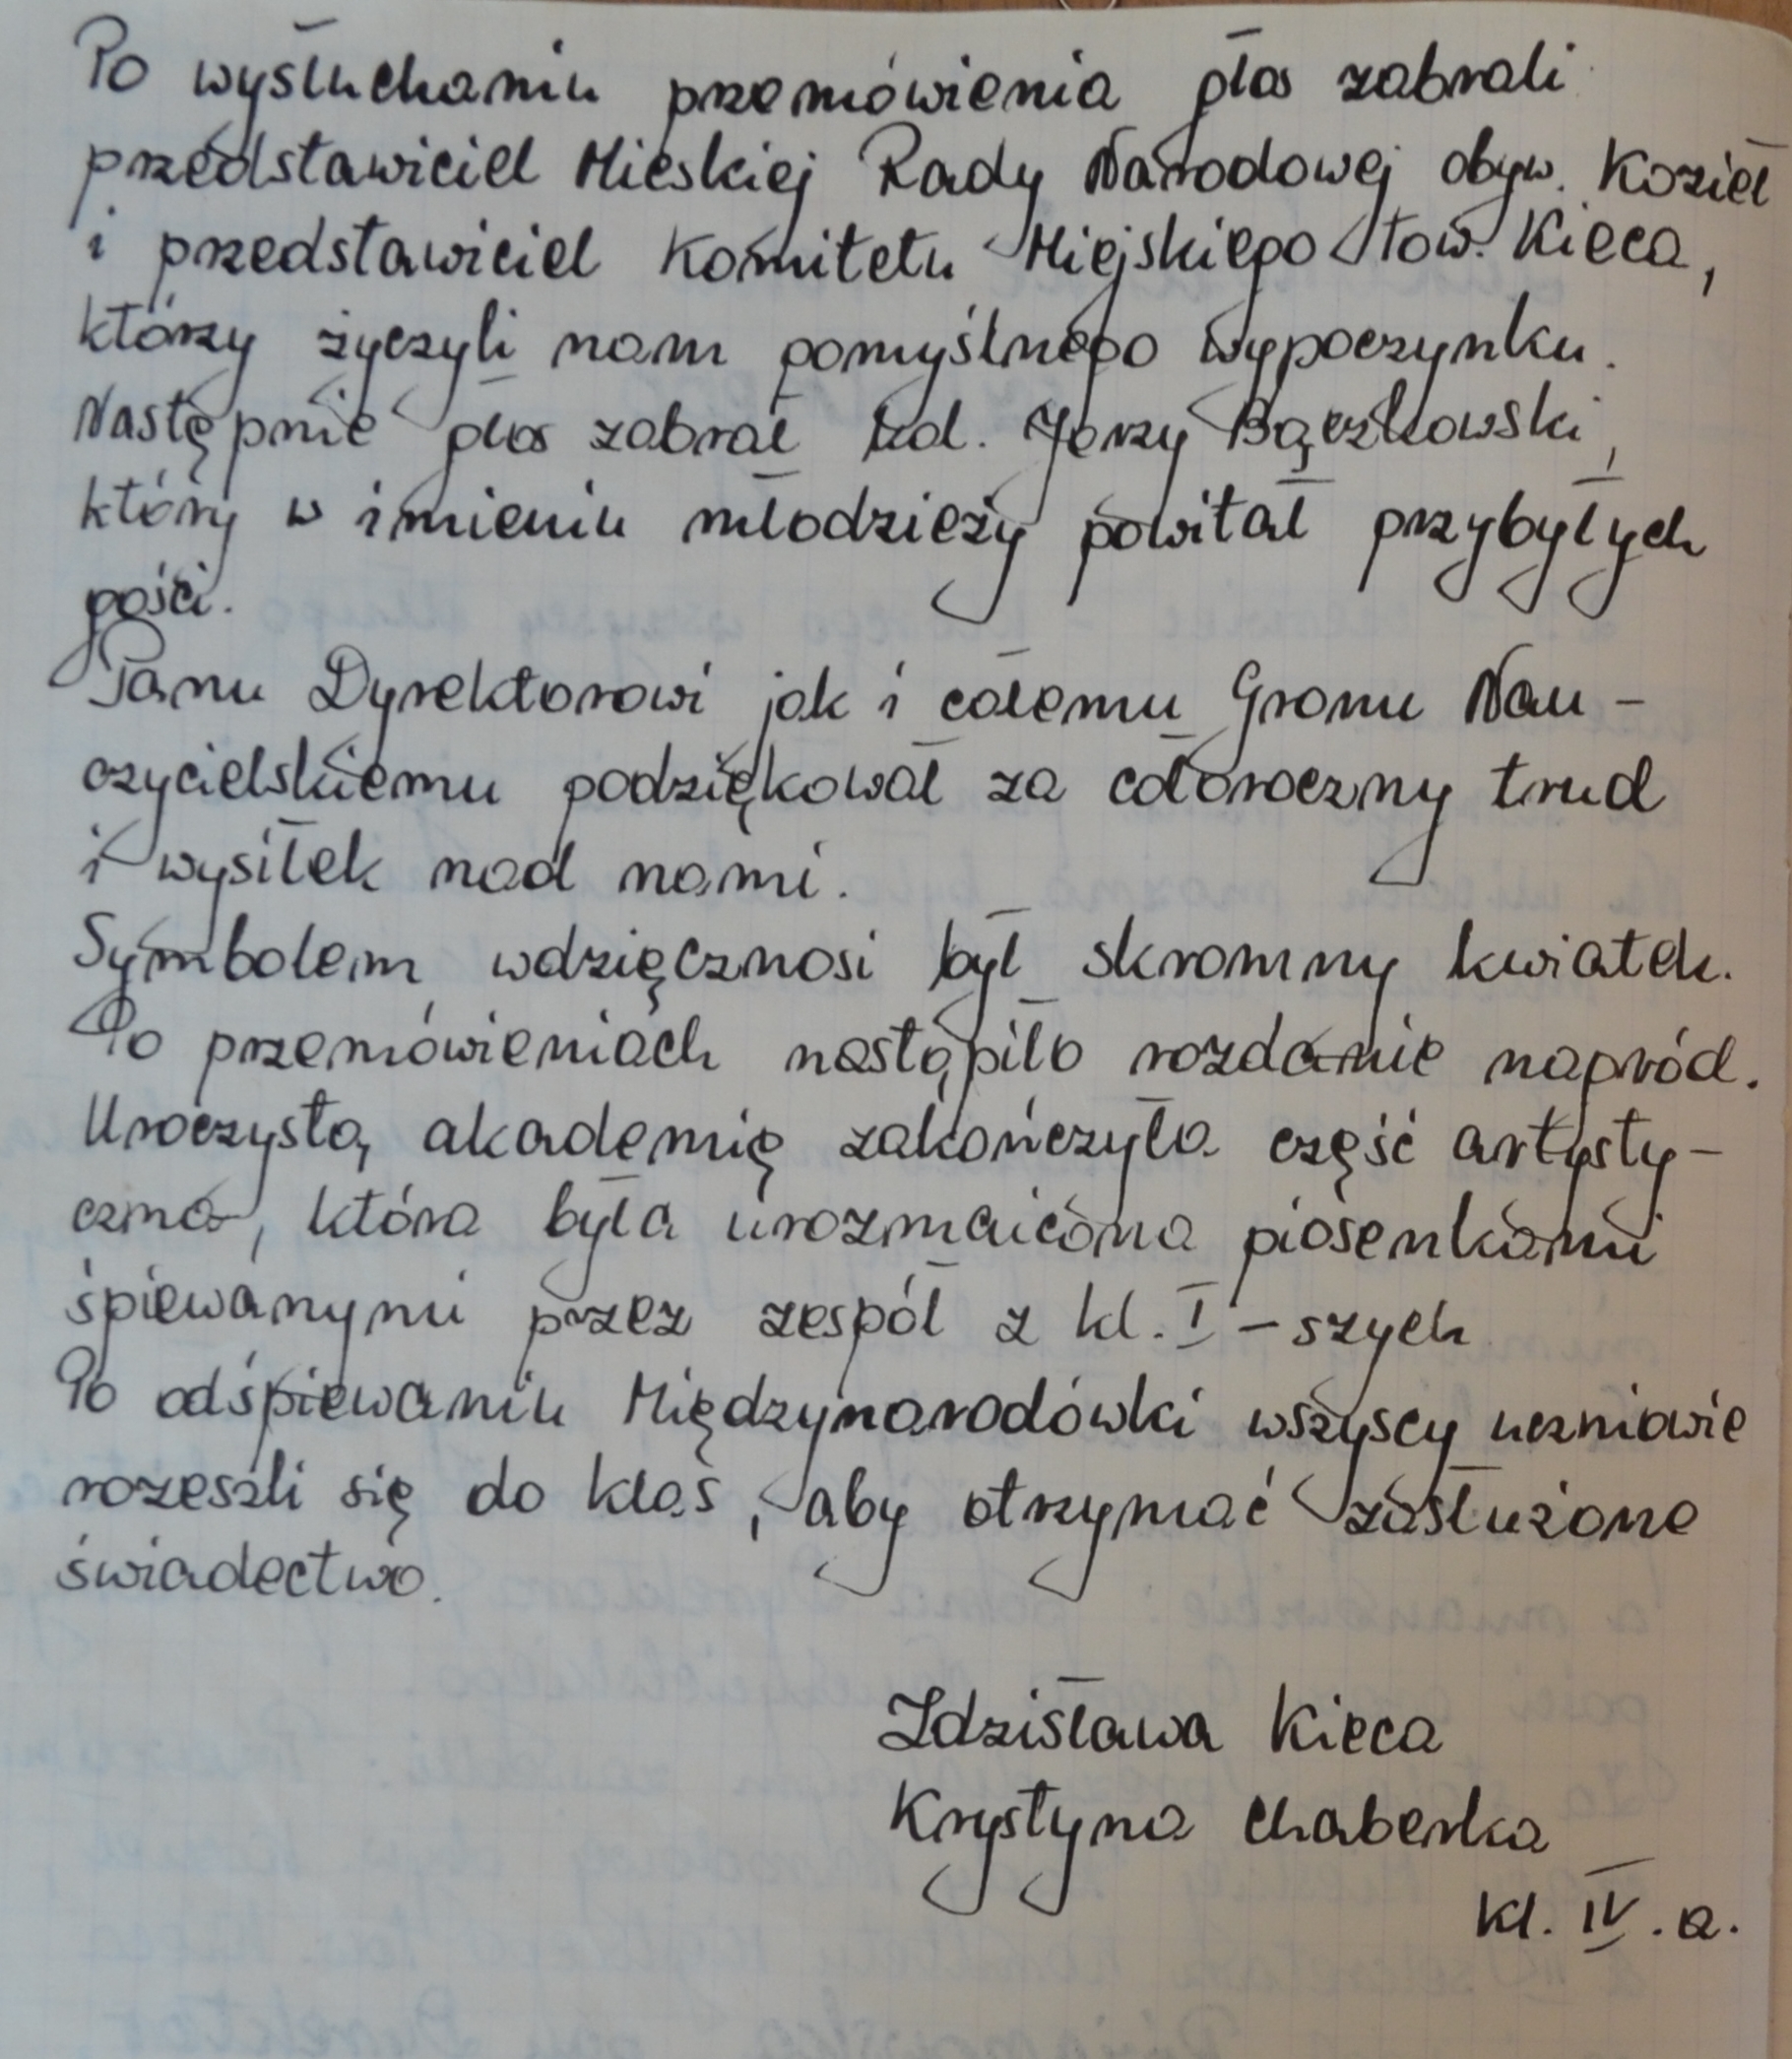 Po wysłuchaniu przemówienia głos zabrali
przedstawiciel Mieskiej Rady Narodowej obyw. Kozieł
i przedstawiciel Komitetu Miejskiego tow. Kieca,
którzy życzyli nam pomyślnego wypoczynku.
Następnie głos zabrał kol. Jerzy Bączkowski,
który w imieniu młodzieży powitał przybyłych
gości.
Panu Dyrektorowi jak i całemu Gronu Nau-
czycielskiemu podziękował za całoroczny trud
i wysiłek nad nami.
Symbolem wdzięcznosi był skromny kwiatek.
Po przemówieniach nastąpiło rozdanie nagród.
Uroczystą akademię zakończyła część artysty-
czna, która była urozmaicona piosenkami
śpiewanymi przez zespół z kl. I-szych
Po odśpiewaniu Międzynarodówki wszyscy uczniowie
rozeszli się do klas, aby otrzymać zasłużone
świadectwo.
Zdzisława Kieca
Krystyna Chaberka
kl. IV. a.